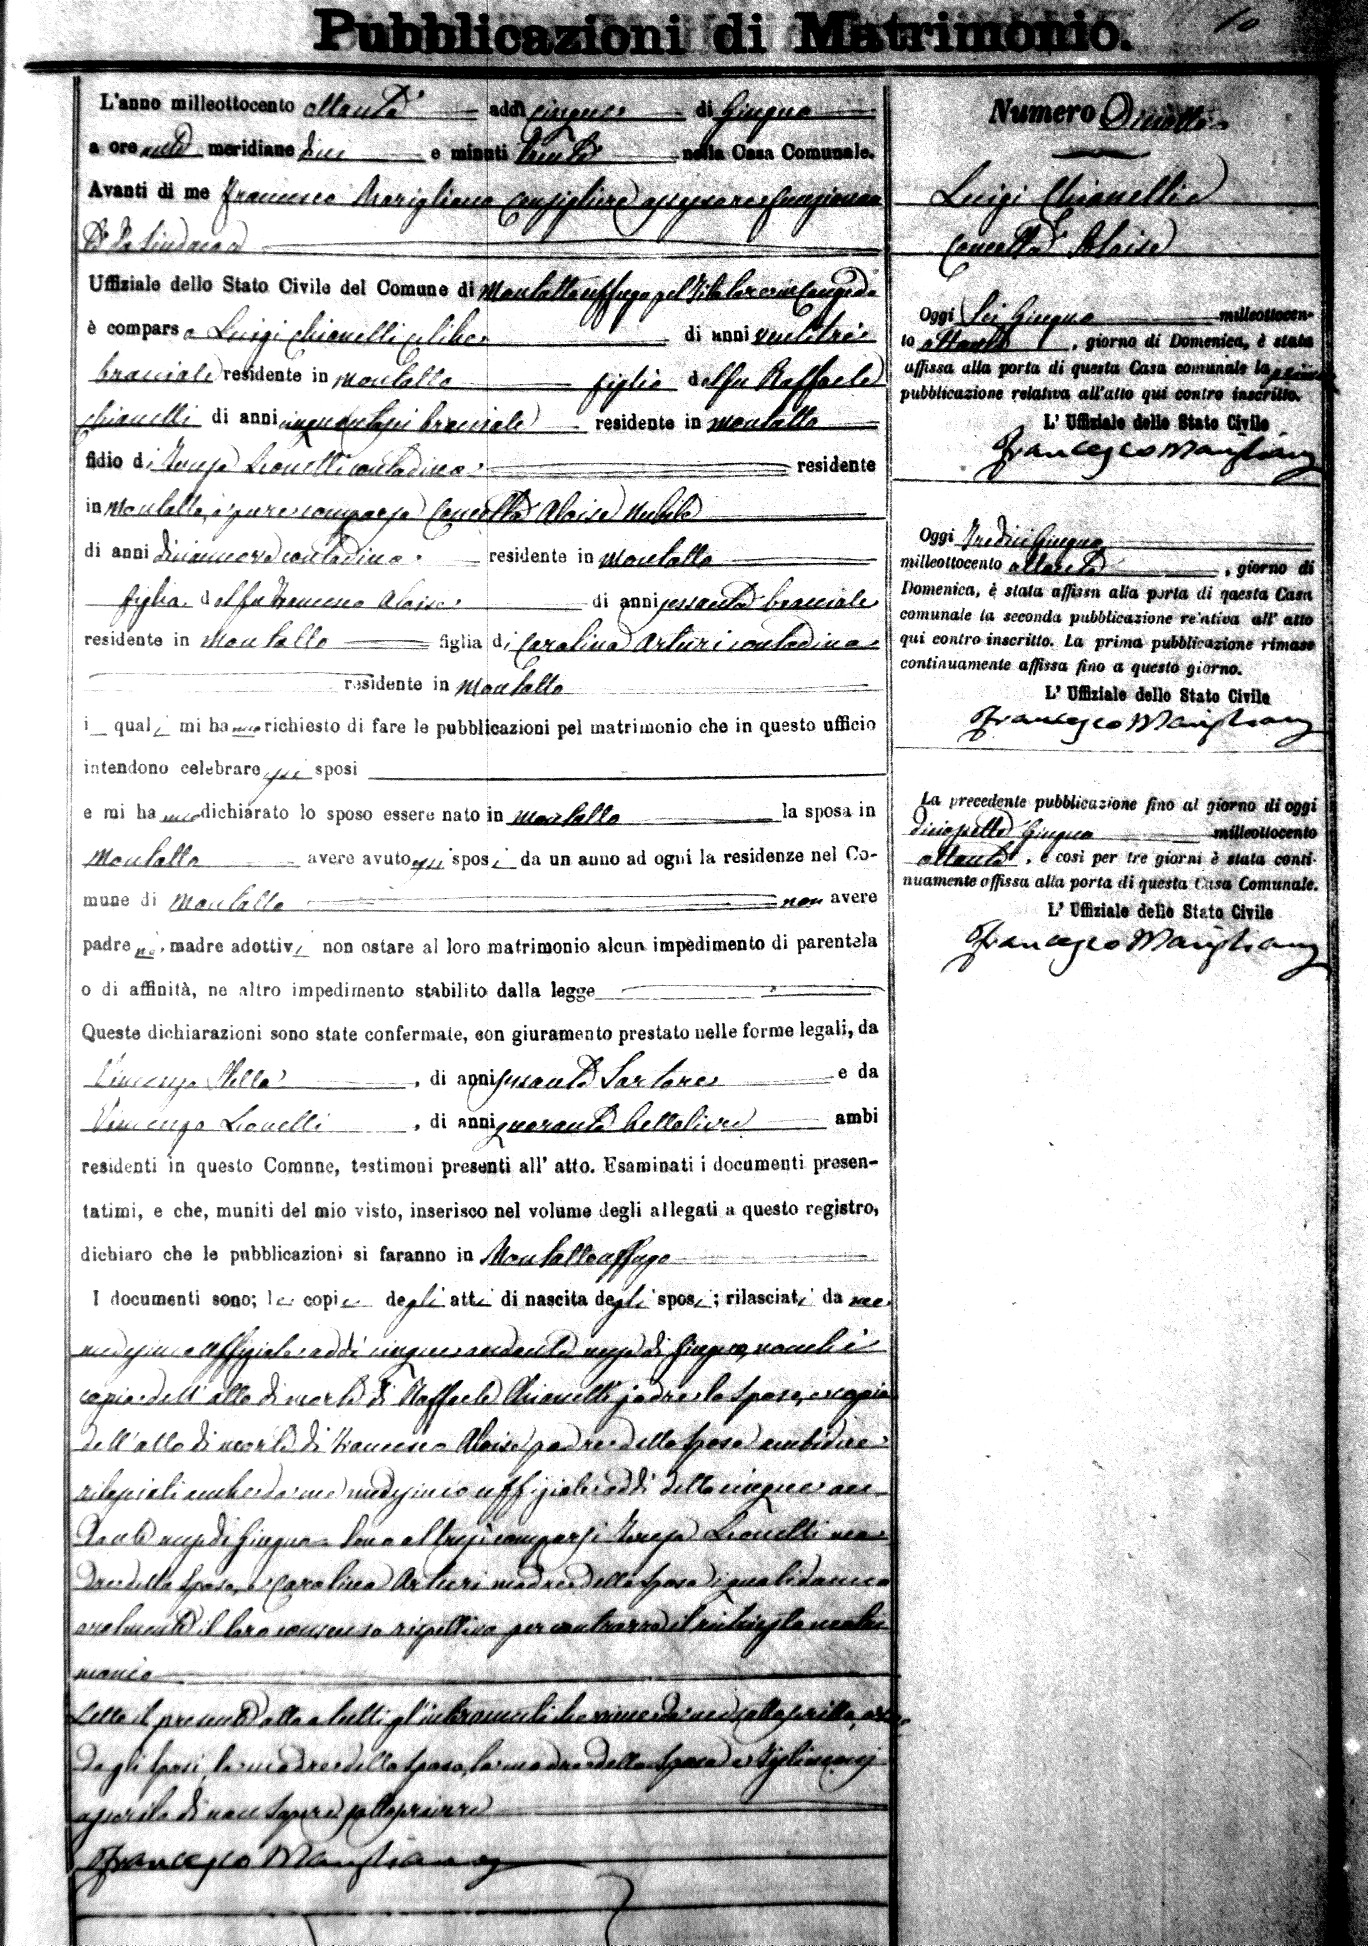 Pubblicazioni di Matrimonio.
10
L'anno milleottocento ottanta addì cinque di Giugno
a ore meridiane e minuti nella Casa Comunale.
Avanti di me Francesco Marigliano Consigliere assessore funzionante
da Sindaco
Uffiziale dello Stato Civile del Comune di Montaltouffugo pel titolare in congedo
è comparso Luigi Chianelli celibe di anni ventitré
bracciale residente in Montalto figlio del fu Raffaele
Chianelli di anni bracciale residente in Montalto
fidio di Teresa Lionetti contadina residente
in Montalto, è pure comparsa Concetta Aloise nubile
di anni diciannove contadina residente in Montalto
figlia del fu Francesco Aloise di anni sessanta bracciale
residente in Montalto figlia di Carolina Arturi contadina
residente in Montalto
i quali mi hanno richiesto di fare le pubblicazioni pel matrimonio che in questo ufficio
intendono celebrare essi sposi
e mi hanno dichiarato lo sposo essere nato in Montalto la sposa in
Montalto avere avuto essi sposi da un anno ad oggi la residenze nel Co-
mune di Montalto non avere
padre nè madre adottivi non ostare al loro matrimonio alcun impedimento di parentela
o di affinità, ne altro impedimento stabilito dalla legge
Queste dichiarazioni sono state confermate, con giuramento prestato nelle forme legali, da
Vincenzo Stella, di anni sessanta Sartore e da
Vincenzo Lionelli, di anni quaranta bettoliere ambi
residenti in questo Comnne, testimoni presenti all' atto. Esaminati i documenti presen-
tatimi, e che, muniti del mio visto, inserisco nel volume degli allegati a questo registro,
dichiaro che le pubblicazioni si faranno in Montaltouffugo
I documenti sono; le copie degli atti di nascita degli sposi; rilasciati da me
medesimo uffiziale addì cinque andante mese di Giugno, nonché
copia dell'atto di morte di Raffaele Chianelli padre lo sposo, e copia
dell'atto di morte di Francesco Aloise padre della sposa
rilasciati anche da me medesimo uffiziale addì detto cinque an-
dante mese di Giugno. Sono altresì comparsi Teresa Lionetti ma-
dre dello sposo, e Carolina Arturi madre della sposa i quali danno
oralmente il loro consenso rispettivo per contrarre il richiesto matri-
monio
Letto il presente atto a tutti gl'intervenuti viene da me sottoscritto,
degli sposi, la madre dello sposo, la madre della sposa e testimoni
asserito di non sapere sottoscrivere
Francesco Marigliano
Numero Diciotto
Luigi Chianelli e
Concetta Aloise
Oggi Sei Giugno milleottocen-
to ottanta, giorno di Domenica, è stata
affissa alla porta di questa Casa comunale la prima
pubblicazione relativa all'atto qui contro inscritto.
L' Uffiziale dello Stato Civile
Francesco Marigliano
Oggi Tredici Giugno
milleottocento ottanta, giorno di
Domenica, è stata affissa alla porta di questa Casa
comunale la seconda pubblicazione relativa all' atto
qui contro inscritto. La prima pubblicazione rimase
continuamente affissa fino a questo giorno.
L' Uffiziale dello Stato Civile
Francesco Marigliano
La precedente pubblicazione fino al giorno di oggi
diciassette Giugno milleottocento
ottanta, e così per tre giorni è stata conti-
nuamente affissa alla porta di questa Casa Comunale.
L' Uffiziale dello Stato Civile
Francesco Marigliano